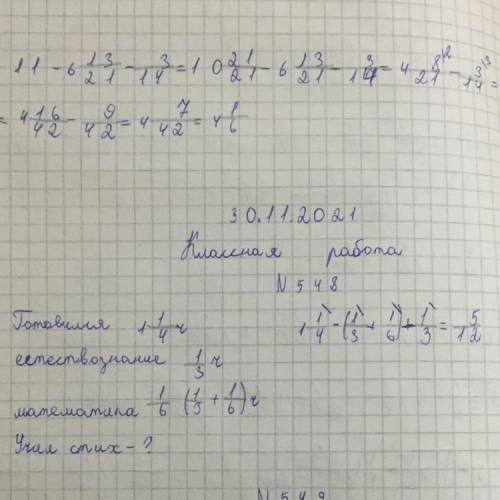 11 - 6 13/21 - 3/14 = 10 21/21 - 6 13/21 - 3/14 = 4 8/21 - 3/14 =
= 4 16/42 - 9/42 = 4 7/42 = 4 1/6
30.11.2021
Классная работа
N548
Готовился 1 1/4 ч
1 1/4 - (1/3 + 1/6) + 1/3 = 5/12
естествознание 1/3 ч
математика 1/6 (1/3 + 1/6) ч
Учил стих - ?
N549